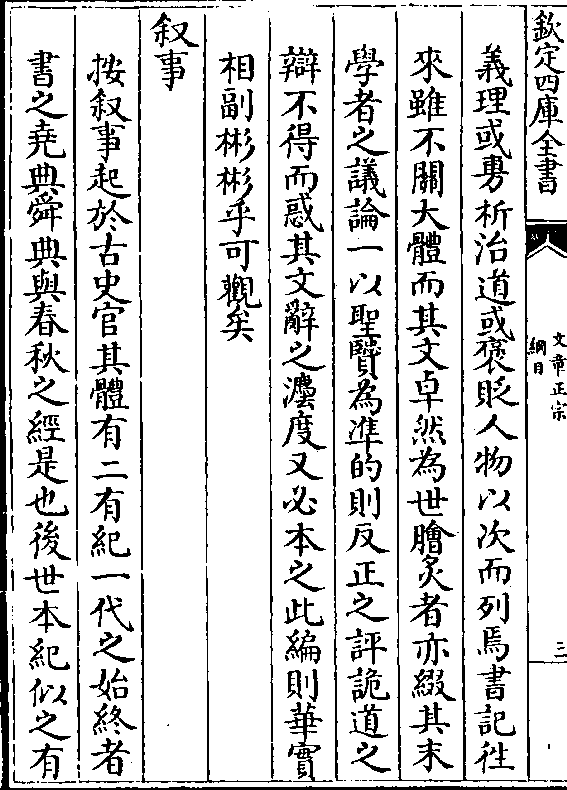 欽定四庫全書
文章正宗
綱目
三
義理或旉析治道或褒貶人物以次而列焉書記徃
來雖不關大體而其文卓然為世膾炙者亦綴其末
學者之議論一以聖賢為凖的則反正之評詭道之
辯不得而惑其文辭之灋度又必本之此編則華實
相副彬彬乎可觀矣
叙事
按叙事起於古史官其體有二有紀一代之始終者
書之堯典舜典與春秋之經是也後世本紀似之有